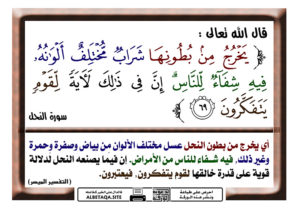 قال الله تعالى :
﴿ يَخْرُجُ مِنْ بُطُونِهَا شَرَابٌ مُّخْتَلِفٌ أَلْوَانُهُ،
فِيهِ شِفَاءٌ لِّلنَّاسِ إِنَّ فِي ذَٰلِكَ لَآيَةً لِّقَوْمٍ
يَتَفَكَّرُونَ ﴿٦٩﴾
سورة النحل
أي يخرج من بطون النحل عسل مختلف الألوان من بياض وصفرة وحمرة
وغير ذلك, فيه شفاء للناس من الأمراض. إن فيما يصنعه النحل لدلالة
قوية على قدرة خالقها لقوم يتفكرون, فيعتبرون.
(التفسير الميسر)
ALBETAQA.SITE